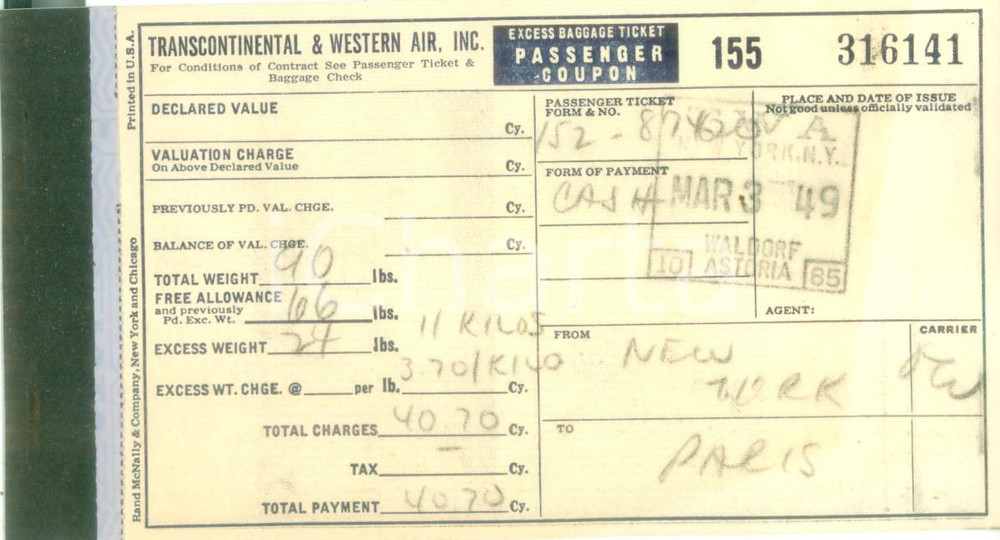 TRANSCONTINENTAL & WESTERN AIR, INC.
For Conditions of Contract See Passenger Ticket &
Baggage Check
EXCESS BAGGAGE TICKET
PASSENGER
COUPON
155
316141
Printed in U.S.A.
Rand McNally & Company, New York and Chicago
DECLARED VALUE
Cy.
VALUATION CHARGE
On Above Declared Value
Cy.
PREVIOUSLY PD. VAL. CHGE.
Cy.
BALANCE OF VAL. CHGE.
Cy.
TOTAL WEIGHT 90 lbs.
FREE ALLOWANCE
and previously
Pd. Exc. Wt. 66 lbs.
EXCESS WEIGHT 24 lbs.
11 KILOS
3.70/KILO
EXCESS WT. CHGE. @ per lb. Cy.
TOTAL CHARGES 40.70 Cy.
TAX — Cy.
TOTAL PAYMENT 40.70 Cy.
PASSENGER TICKET
FORM & NO.
152 -
FORM OF PAYMENT
CASH
PLACE AND DATE OF ISSUE
Not good unless officially validated
YORK, N.Y.
MAR 3 49
WALDORF
10 ASTORIA 65
AGENT:
FROM
NEW
YORK
CARRIER
TO
PARIS
iCharta